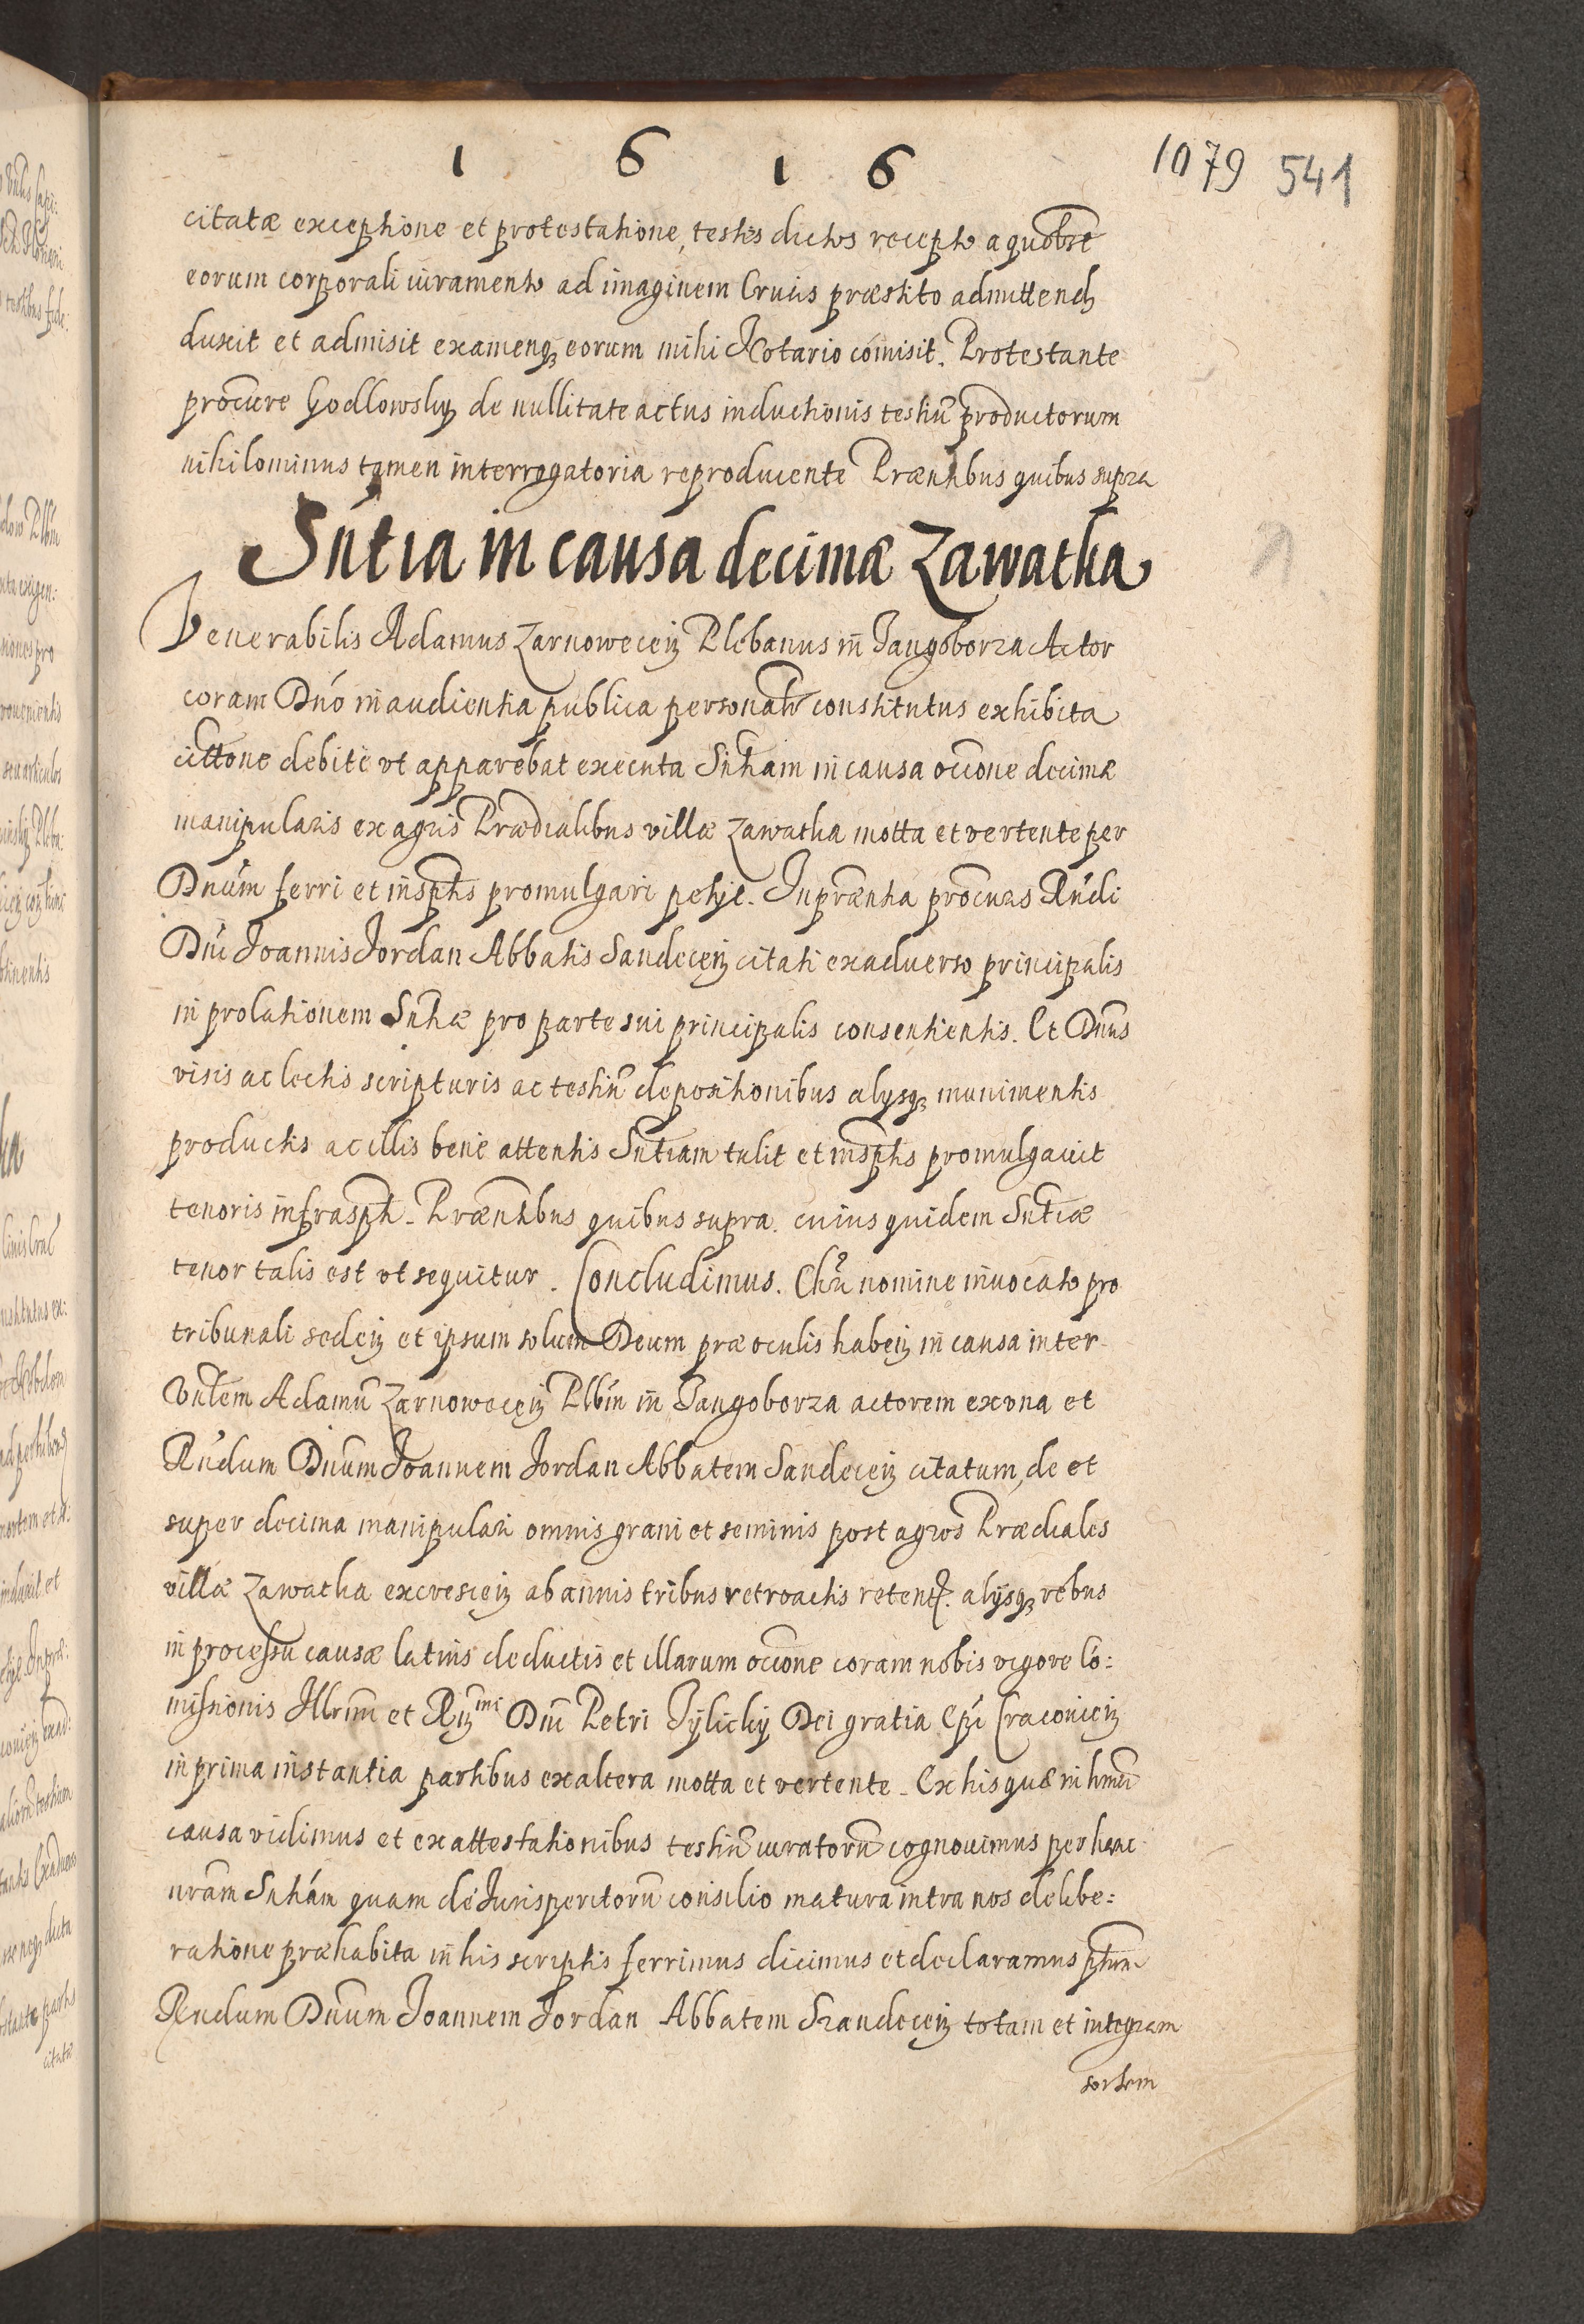 1 6 1 6
1079 541
citatæ exceptione et protestatione, testes dictos recepto a quolibet
eorum corporali iuramento ad imaginem Crucis præstito admittend
duxit et admisit examenq3 eorum mihi Notario comisit. Protestante
procure Godlowsky de nullitate actus inductionis testiū productorum
nihilominus tamen interrogatoria reproducente Præntibus quibus supra
Sntia in causa decimæ Zawatka
Venerabilis Adamus Zarnowecen Plebanus in Jangoborza Actor
coram Dno in audientia publica personatr constitutus exhibita
cittone debite vt apparebat executa Sntiam in causa occione decimæ
manipularis ex agris Prædialibus villæ Zawatka motta et vertente per
Dnum ferri et in sptis promulgari petijt. In præntia procurs Rndi
Dni Joannis Jordan Abbatis Sandecen citati ex aduerso principalis
in prolationem Sntiæ pro parte sui principalis consentientis. Et Dnus
visis ac lectis scripturis ac testiū depositionibus alysq3 munimentis
productis ac illis bene attentis Sntiam tulit et in sptis promulgauit
tenoris infraspti. Præntibus quibus supra. cuius quidem Sntiæ
tenor talis est vt sequitur. Concludimus. Chri nomine inuocato pro
tribunali seden et ipsum solum Deum præ oculis haben in causa inter
Vnlem Adamū Zarnowecen Plbn in Jangoborza actorem ex vna et
Rndum Dnum Joannem Jordan Abbatem Sandecen citatum, de et
super decima manipulari omnis grani et seminis post agros Prædiales
villæ Zawatka excrescen ab annis tribus retroactis retent. alysq3 rebus
in processu causæ latius deductis et illarum occione coram nobis vigore Co:
missionis Illrmi et Rmi Dni Petri Tylicky Dei gratia Epi Cracouien
in prima instantia partibus ex altera motta et vertente. Ex his quæ in hmoi
causa vidimus et ex attestationibus testiū iuratorū cognouimus per hanc
nram Sntiam quam de Jurisperitorū consilio matura intra nos delibe:
ratione præhabita in his scriptis ferrimus dicimus et declaramus ptum
Rndum Dnum Joannem Jordan Abbatem Szandecen totam et integram
sortem